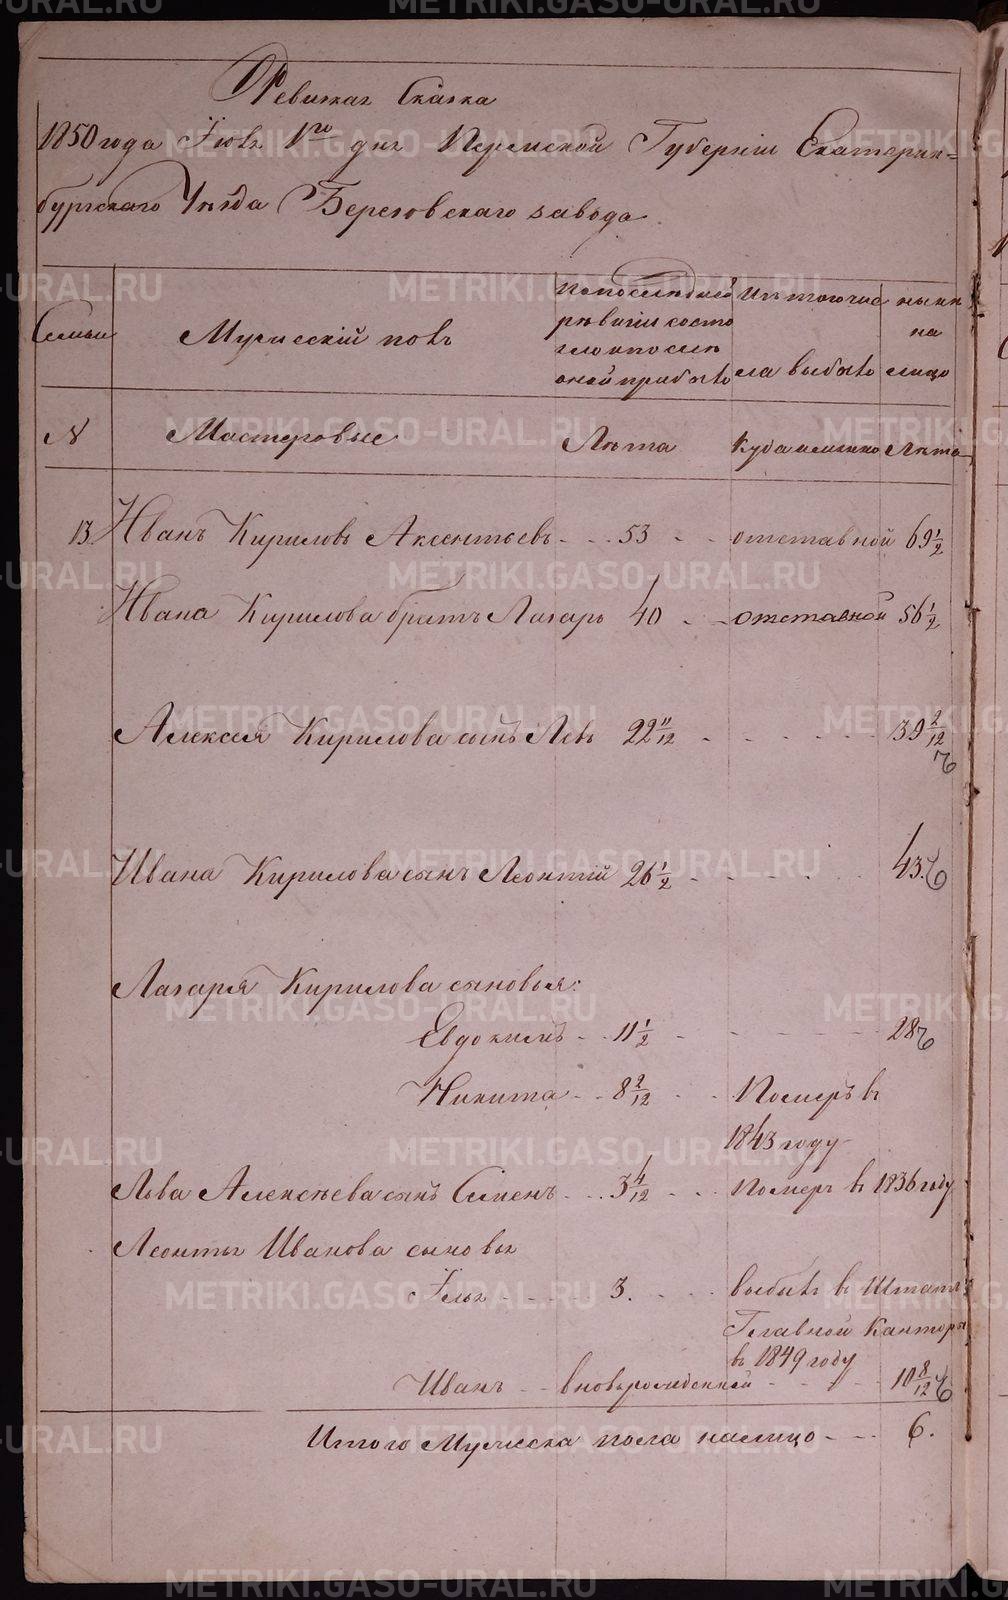 Ревизкая Скаска
1850 года Июля 1го дня Пермской Губерніи Екатерин=
бургскаго Уѣзда Березовскаго завода
Семьи
Мужескій полъ
По последней ревизіи состояло и после оной прибыло
Изъ того числа выбыло
ныне на лицо
№
Мастеровые
Лѣта
Куда именно
Лѣта
13 Иванъ Кириловъ Аксентьевъ - - 53 - - отставной 69 1/2
Ивана Кирилова братъ Лазарь 40 - - отставной 56 1/2
Алексея Кирилова сынъ Левъ 22 11/12 - - - - - 39 2/12
Ивана Кирилова сынъ Леонтій 26 1/2 - - - - - 43.
Лазаря Кирилова сыновья:
Евдокимъ - - 11 1/2 - - - - - 28
Никита - - 8 2/12 - - Померъ въ
1843 году
Льва Алексѣева сынъ Семенъ - - 3 4/12 - - Померъ въ 1836 году
Леонтья Иванова сыновья
Илья - - - - 3. - - - выбылъ въ Штатъ
Главной Канторы
въ 1849 году
Иванъ - - вновьрожденной - - - - 10 8/12
Итого Мужеска пола налицо - - - 6.
METRIKI.GASO-URAL.RU